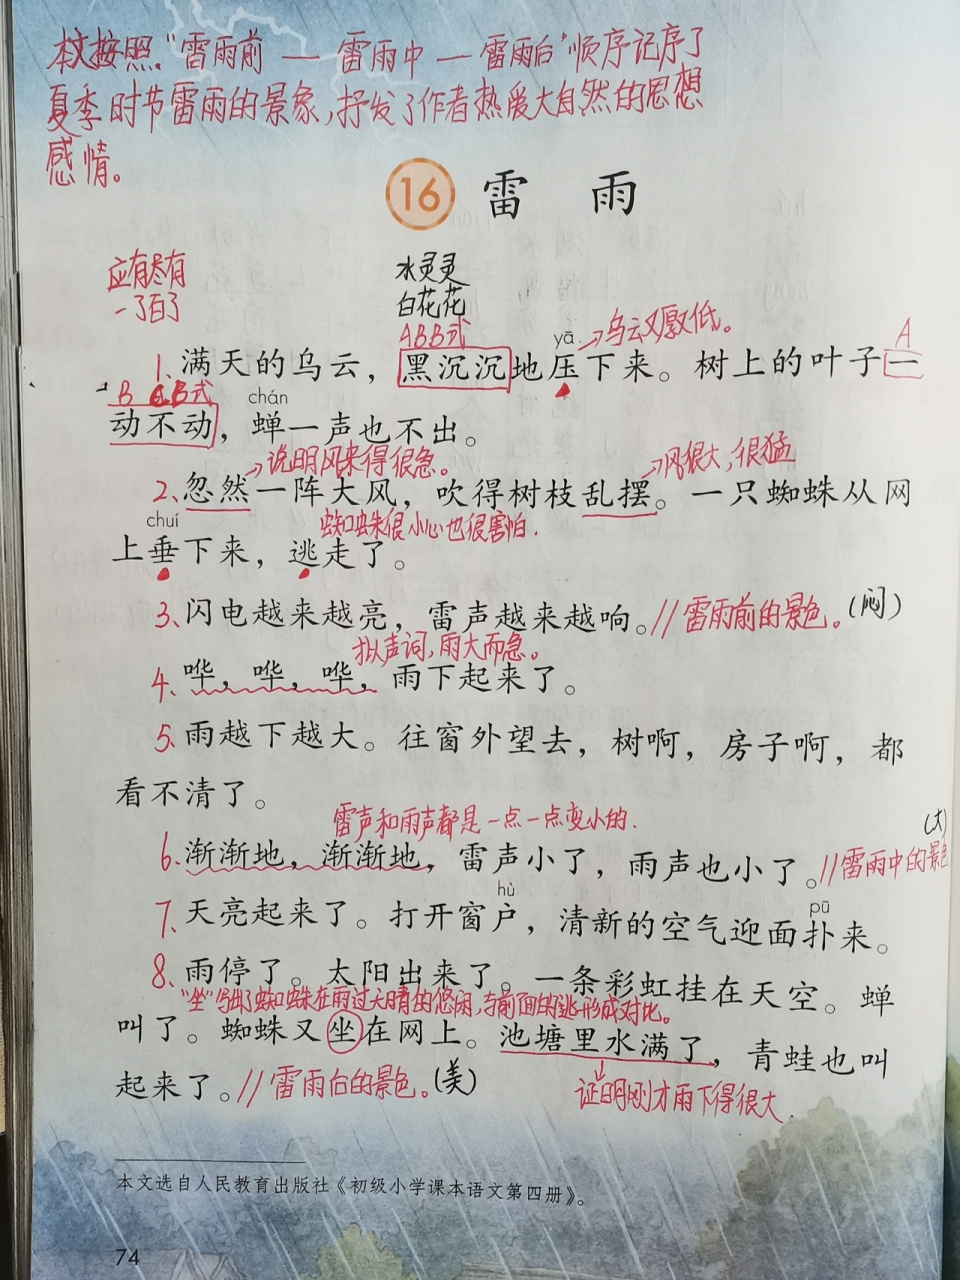 本文按照“雷雨前—雷雨中—雷雨后”顺序记序了
夏季时节雷雨的景象,抒发了作者热爱大自然的思想
感情。
16 雷雨
应有尽有
一了百了
水灵灵
白花花
ABB式
yā
→乌云又厚又低。
A
1、满天的乌云，黑沉沉地压下来。树上的叶子一
B CB式
chán
动不动，蝉一声也不出。
→说明风来得很急。
→风很大,很猛
2、忽然一阵大风，吹得树枝乱摆。一只蜘蛛从网
chuí
蜘蛛很小心也很害怕.
上垂下来，逃走了。
3、闪电越来越亮，雷声越来越响。//雷雨前的景色。(闷)
拟声词,雨大而急。
4、哗，哗，哗，雨下起来了。
5、雨越下越大。往窗外望去，树啊，房子啊，都
看不清了。
雷声和雨声都是一点一点变小的.
(大)
6、渐渐地，渐渐地，雷声小了，雨声也小了。//雷雨中的景色
hù
pū
7、天亮起来了。打开窗户，清新的空气迎面扑来。
8、雨停了。太阳出来了。一条彩虹挂在天空。蝉
“坐”写出了蜘蛛在雨过天晴的悠闲,与前面的逃形成对比。
叫了。蜘蛛又坐在网上。池塘里水满了，青蛙也叫
起来了。//雷雨后的景色。(美)
证明刚才雨下得很大.
本文选自人民教育出版社《初级小学课本语文第四册》。
74